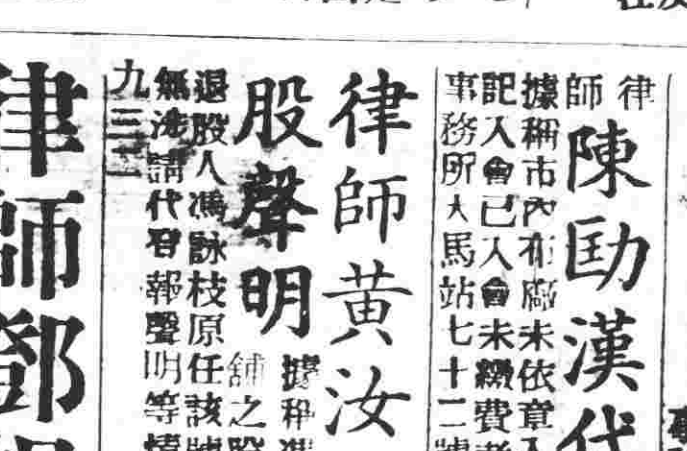 律師
陳劻漢代
據稱市內布廠未依章入
記入會已入會未繳費者
事務所大馬站七十二號
律師黃汝
據稱馮
股聲明
舖之股
退股人馮詠枝原任該號
無涉請代登報聲明等情
九三二
律師鄧